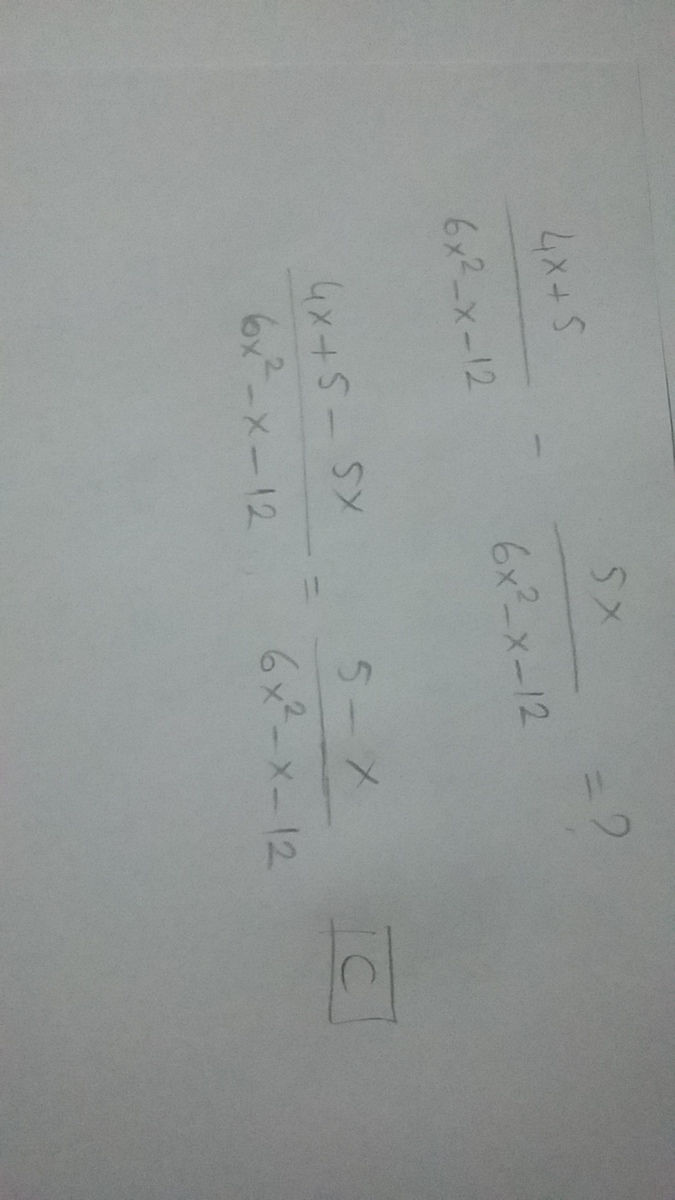 4x+5 / 6x² - x - 12 - 5x / 6x² - x - 12 = ?
4x+5 - 5x / 6x² - x - 12 = 5 - x / 6x² - x - 12 C